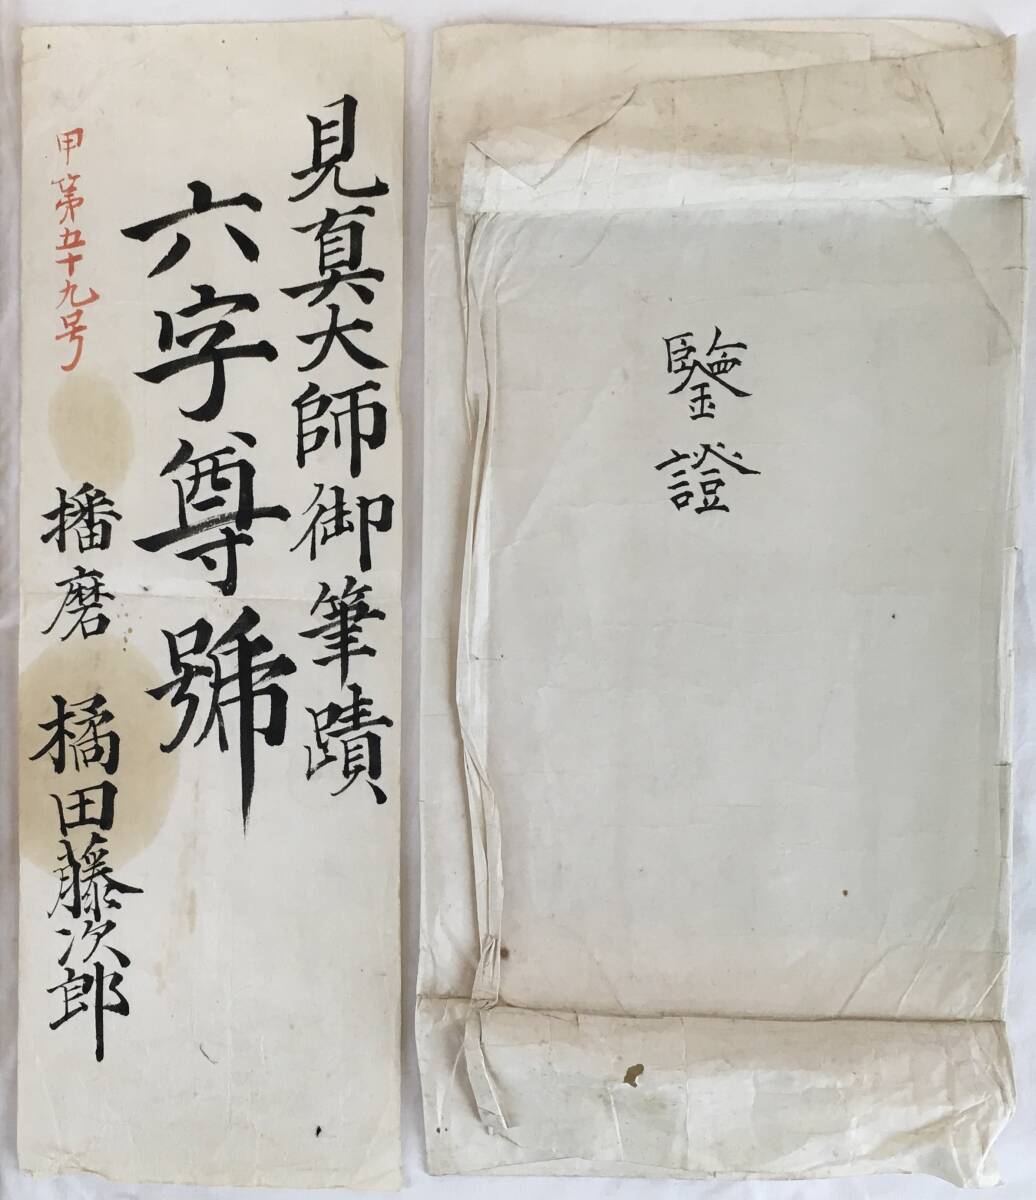 鑒證
見真大師御筆蹟
六字尊號
甲第五十九号
播磨 橘田藤次郎